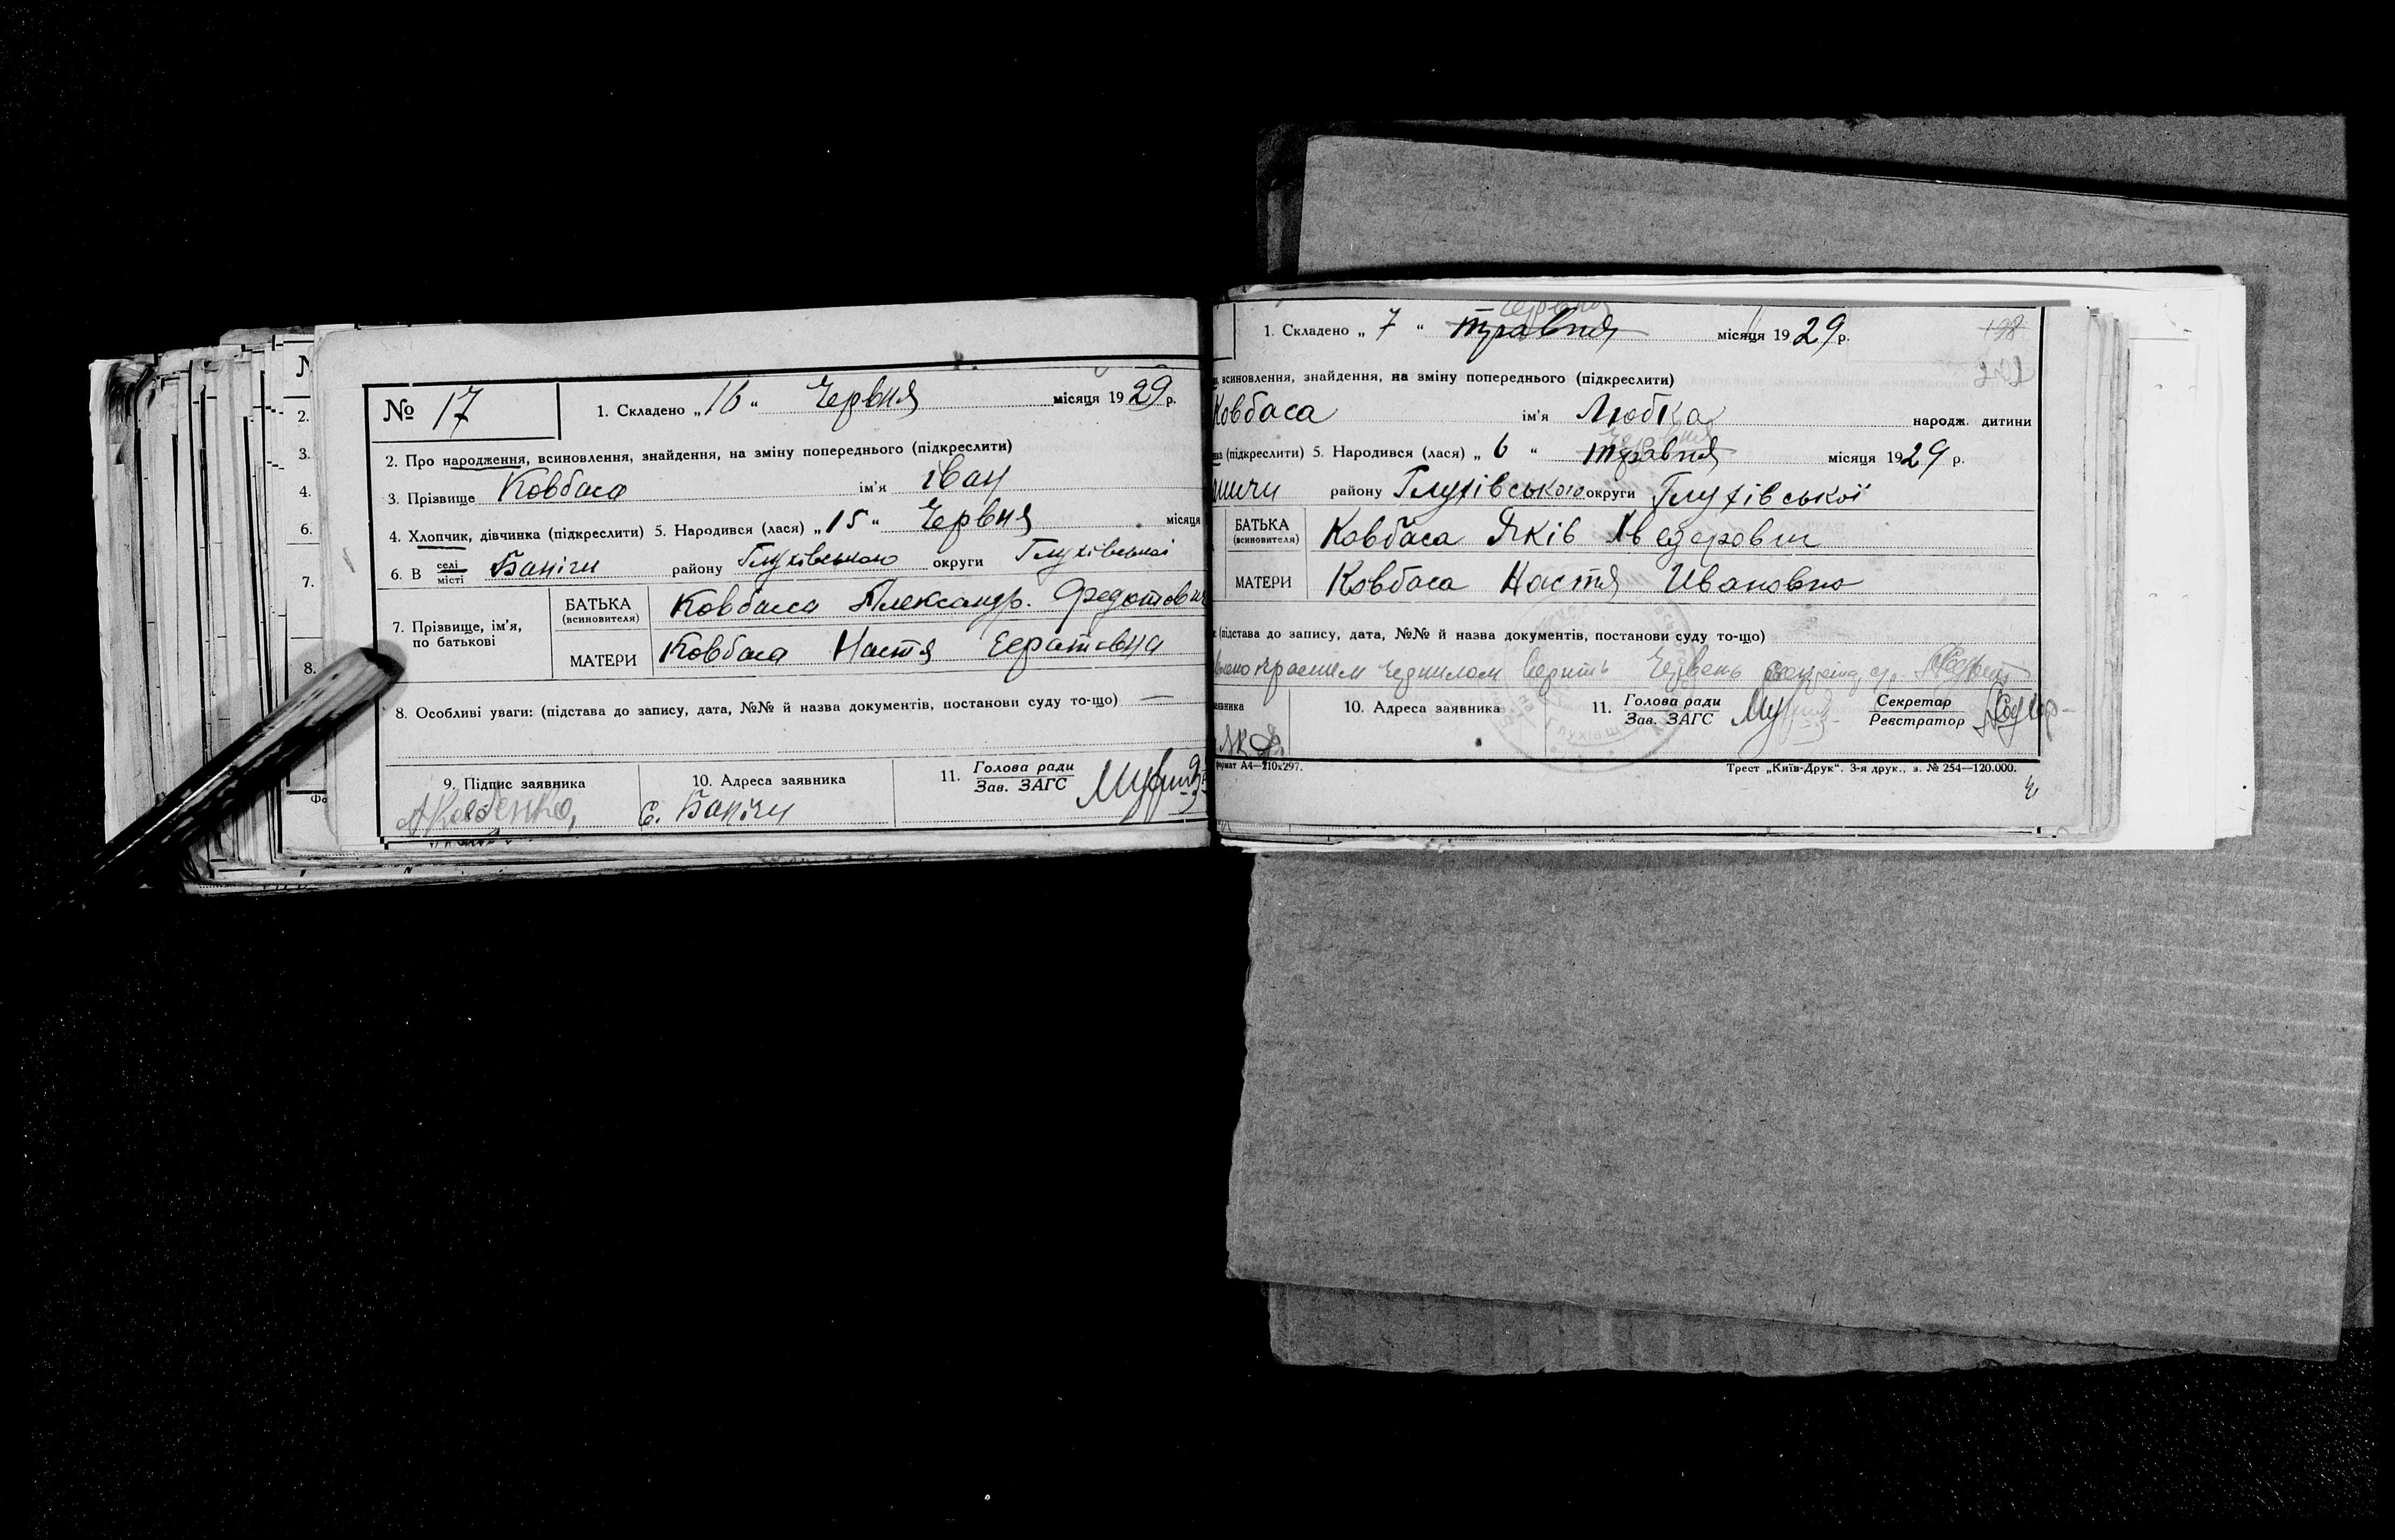 № 17
1. Складено „ 16 “ Червня місяця 1929 р.
2. Про народження, всиновлення, знайдення, на зміну попереднього (підкреслити)
3. Прізвище Ковбаса ім'я іван
4. Хлопчик, дівчинка (підкреслити) 5. Народився (лася) „ 15 “ Червня місяця
6. В селі місті Банічи району Глухівського округи Глухівської
7. Прізвище, ім'я, по батькові
БАТЬКА (всиновителя) Ковбаса Александр. Федотович
МАТЕРИ Ковбаса Настя
8. Особливі уваги: (підстава до запису, дата, №№ й назва документів, постанови суду то-що) —
9. Підпис заявника
10. Адреса заявника
с. Банічи
11. Голова ради Зав. ЗАГС
N
2.
3.
4.
6.
7.
8.
Фо
червня
1. Складено „ 7 “ травня місяця 1929 р.
198
202
всиновлення, знайдення, на зміну попереднього (підкреслити)
Ковбаса ім'я Любка народж. дитини
червня
(підкреслити) 5. Народився (лася) „ 6 “ травня місяця 1929 р.
ничи району Глухівського округи Глухівської
БАТЬКА (всиновителя) Ковбаса Яків
МАТЕРИ Ковбаса Настя Ивановна
(підстава до запису, дата, №№ й назва документів, постанови суду то-що)
красним чернилом верить Червень
явника
10. Адреса заявника
11. Голова ради Зав. ЗАГС
Секретар Реєстратор
формат А4—210х297.
Трест „Київ-Друк“. 3-я друк., з. № 254—120.000.